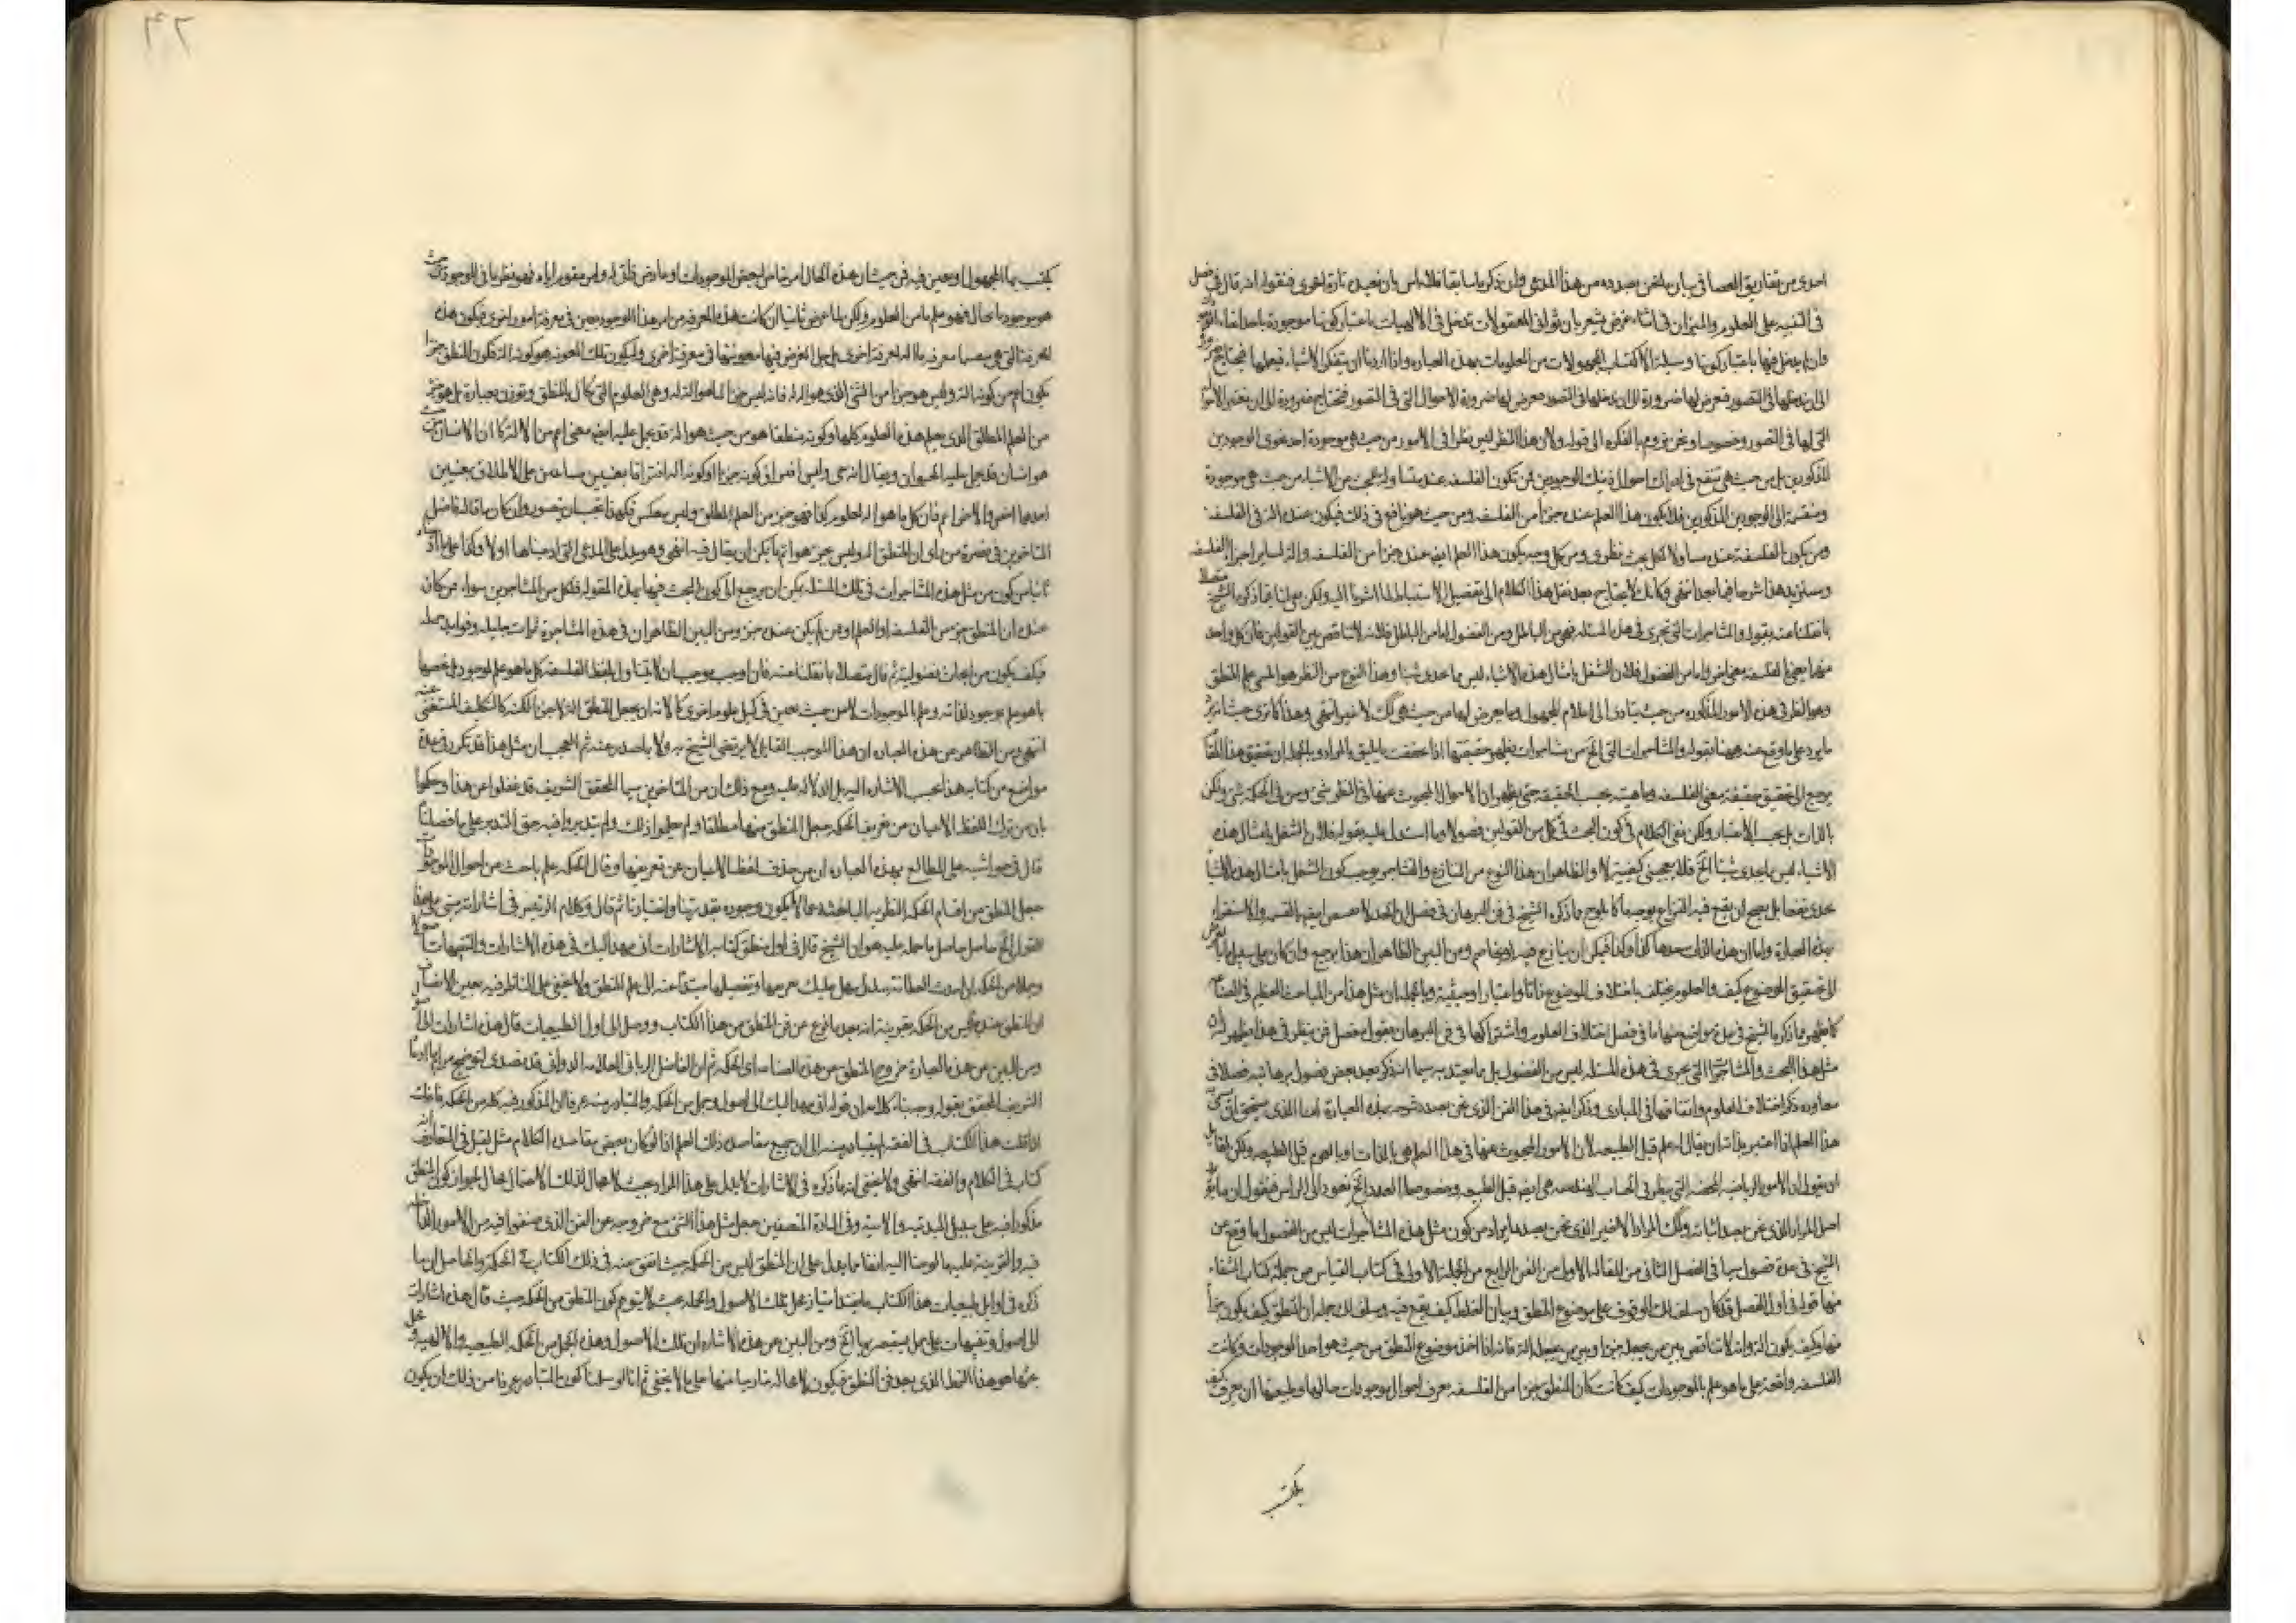 احدى من تفاريق العصا في بيان ما نحن بصدده من هذا المدعى وان ذكرناه سابقا فلا باس بان نعيده تارة اخرى فنقول انه قال في فصل
في التنبيه على العلوم والميزان في اثناء غرض يشعر بان ثواني المعقولات تدخل في الالهيات باعتبار كونها موجودة باحد انحاء الوجود
وان لم يدخل فيها باعتبار كونها وسيلة الى اكتساب المجهولات من المعلومات بهذه العباره واذا اردنا ان نتفكر الاشياء فيعلمها فنحتاج
الى ان ندخلها في التصور فتعرض لها ضرورة الاحوال التي في التصور فنحتاج ضرورة الى ان نعتبر الاحوال
التي لها في التصور وخصوصا ونحن نروم بالفكره الى قوله ولان هذا النظر ليس نظرا في الامور من حيث هي موجودة احد نحوى الوجودين
المذكورين بل من حيث هي تنفع في ادراك احوال ذينك الوجودين فمن تكون الفلسفه عنده متناوله للبحث عن الاشياء من حيث هي موجودة
ومنقسمة الى الوجودين المذكورين فلا يكون هذا العلم عنده جزءا من الفلسفه ومن حيث هو نافع في ذلك فيكون عنده آلة في الفلسفه
ومن يكون الفلسفة عنده متناولا لكل بحث نظرى ومن كل وجه يكون هذا العلم ايضا عنده جزءا من الفلسفه وآلة لسائر اجزاء الفلسفه
وسنزيد هذا شرحا فيما بعد انتهى وكانك لا يحتاج بعد نقل هذا الكلام الى تفصيل الاستنباط لما اشرنا اليه ولكن معنا بقا ذكره الشيخ متصلا
بما نقلنا عنه بقوله والمشاجرات التي تجرى في هذه المسئله فهي من الباطل ومن الفضول اما من الباطل فلانه لا تناقض بين القولين فان كل واحد
منهما يعنى بالفلسفه معنى اخر واما من الفضول فلان الشغل بامثال هذه الاشياء ليس مما يجدى شيئا وهذا النوع من النظر هو المسمى علم المنطق
وهو النظر في هذه الامور المذكوره من حيث يتادى الى اعلام المجهول وما يعرض لها من حيث هي كذلك لا غير انتهى وهذا كما ترى حيث انه
ما يرد على ما وقع عنه ههنا بقوله والمشاجرات التي الخ من مشاجرات يظهر حقيقتها اذا حققت ما يليق بالمراد وبالجمله ان تحقيق هذا المقام
يرجع الى تحقيق حقيقة معنى الفلسفه وماهيته بحسب الحقيقه حتى يظهر ان الاحوال المبحوث عنها في النظر شئ ومن في الحكمه شئ ولكن
بالذات بل بحسب الاعتبار ولكن بقى الكلام في كون البحث في كل من القولين فضولا وما استدل عليه بقوله فلان الشغل بامثال هذه
الاشياء ليس ما يجدى شيئا الخ فلا يعجبنى كيف لا والظاهر ان هذا النوع من التنازع والتشاجر يوجب كون الشغل بامثال هذه الاشياء
يجدى نفعا بل يصح ان يقع فيه النزاع بوجه ما كما يلوح مما ذكره الشيخ في فن البرهان في فصل ان الحد لا يقتنص ايضا بالقسمه والاستقراء
بهذه العبارة واما ان هذه الذات حدها كذا وكذا فيمكن ان ينازع فيه او يخاصم ومن البين الظاهر ان هذا يرجع وان كان على سبيل ما
الى تحقيق الموضوع كيف والعلوم يختلف باختلاف الموضوع ذاتا واعتبارا وحيثية وبالجمله ان مثل هذا من المباحث العظيم في الصناعه
كما يظهر مما ذكره الشيخ في عدة مواضع منها ما في فصل اختلاف العلوم واشتراكها في فن البرهان بقوله فصل فمن ينظر في هذا يظهر له ان
مثل هذا البحث والمشاجرة التي يجرى في هذه المسئله ليس من الفضول بل ما يعتد به سيما انه ذكر بعد بعض فصول برهانيه فصلا في
معاودة ذكر اختلاف العلوم واتفاقها في المبادى وذكر ايضا في هذا الفن الذى نحن بصدد شرحه بهذه العبارة اما الذى يستحق ان يسمى
هذا العلم اذا اعتبر بذاته ان يقال له علم قبل الطبيعه لان الامور المبحوث عنها في هذا العلم هي بالذات وبالعموم قبل الطبيعه ولكن لقائل
ان يقول ان الامور الرياضية المحضه التي ينظر فيها في الحساب والهندسه هي ايضا قبل الطبيعه وخصوصا العدد الخ نعود الى الراس فنقول ان مما يؤيد
اصل المراد الذى نحن بصدد اثباته وكذلك المراد الاخير الذى نحن بصدد ايراده من كون مثل هذه المشاجرات ليس من الفضول ما وقع عن
الشيخ في عدة فصول سيما في الفصل الثانى من المقاله الاولى من الفن الرابع من الجملة الاولى في كتاب القياس من جملة كتاب الشفاء
منها قوله في اول الفصل قد كان سلف لك الوقوف على موضوع المنطق وبيان الغلط كيف يقع فيه وسلف لك جملة ان المنطق كيف يكون جزءا
منها وكيف يكون آلة وانه لا تناقض بين من يجعله جزءا وبين من يجعله آلة فانه اذا اخذ موضوع المنطق من حيث هو احد الموجودات وكانت
الفلسفه واقعة على ما هو علم بالموجودات كيف كانت كان المنطق جزءا من الفلسفه يعرف احوال موجودات حالها وطبيعتها ان يعرف كيف
يكتسب
٤٢
يكتسب بها المجهول او يعين فيه فمن حيث ان هذه الحال امر قاس لبعض الموجودات او عارض ذاتى له وامر مقوم اياه فهو نظر ما في الموجود من حيث
هو موجود ما بحال فهو علم ما من العلوم ولكن لما عرض ثانيا ان كانت هذه المعرفه من امر هذا الموجود يعين في معرفة امور اخرى فيكون هذه
المعرفة التي هي بنفسها معرفه ما آلة لمعرفة اخرى بل جل الغرض فيها معونتها في معرفة اخرى وليكون تلك المعونه هو كونه آلة فكون المنطق جزءا
يكون اعم من كونه آلة وليس هو جزءا من الشئ الذى هو آلة له فانه ليس جزءا لما هو آلة له وهي العلوم التي تكال بالمنطق وتوزن به عبارة بل هو جزء
من العلم المطلق الذى يعم هذه العلوم كلها وكونه منطقا هو من حيث هو آلة قد يحمل عليه ايضا معنى اعم من الآلة كما ان الانسان من حيث
هو انسان قد يحمل عليه الحيوان ويقال انه حى وليس افتراق كونه جزءا وكونه آلة افتراقا بمعنيين متباعدين على الاطلاق بمعنيين
احدهما اخص والاخر اعم فان كل ما هو آلة لعلوم كذا فهو جزء من العلم المطلق وليس ينعكس فهكذا يجب ان يتصور وان كان ما قاله فاضل
المتاخرين في نصرة من راى ان المنطق آلة وليس بجزء هو اتم ما يمكن ان يقال فيه انتهى وهو يدل على المدعى التي ادعيناها اولا وكذا على ما
ثانيا من كون مثل هذه المشاجرات في تلك المسئله يمكن ان يرجع الى كون البحث فيها بهذه المقوله فلكل من المشاجرين سواء من كان
عنده ان المنطق جزء من الفلسفه او العلم او من لم يكن عنده جزء ومن البين الظاهر ان في هذه المشاجرة ثمرات جليله وفوايد جمله
فكيف يكون من ابحاث فضولية ثم قال متصلا بما نقلنا عنه فان اوجب موجب ان لا يتناول لفظ الفلسفه كل ما هو علم بموجود بل يخصها
بما هو علم بموجود لذاته وعلم بالموجودات لا من حيث تعين في نيل علوم اخرى كان له ان يجعل المنطق آلة لا جزءا لكنه كالتكلف المستغنى عنه
انتهى من الظاهر من هذه العباره ان هذا الموجب القايل لا يرتضى الشيخ به ولا باصدر عنه ثم العجب ان مثل هذا قد تكرر في عدة
مواضع من كتابه هذا بحسب الاشاره اليه بل الدلاله عليه ومع ذلك ان من المتاخرين سيما المحقق الشريف قد غفلوا عن هذا وحكموا
بان من ترك اللفظ الاعيان من تعريف الحكمه جعل المنطق منها مطلقا ولم يعلموا ذلك ولم يتدبروا فيه حق التدبر على ما فصلنا
قال في حواشيه على المطالع بهذه العباره ان من حذف لفظ الاعيان عن تعريفها وقال الحكمه علم باحث عن احوال الموجودات
جعل المنطق من اقسام الحكمه النظريه الباحثه عما لا يكون وجوده بقدرتنا واختيارنا ثم قال وكلام الرئيس في اشاراته مبنى على هذا
القول الخ حاصل ما حمله عليه هو ان الشيخ قال في اول منطق كتابه الاشارات انى مهد اليك في هذه الاشارات والتنبيهات اصولا
وجملا من الحكمه ان اخذت الفطانة بيدك سهل عليك تفريعها وتفصيلها مبتدا عنه الى علم المنطق ولا يخفى على الناظر فيه بعين الانصاف
ان المنطق عنده ليس من الحكمه بقرينة انه بعد ما فرغ عن فن المنطق من هذا الكتاب ووصل الى اول الطبيعيات قال هذه اشارات الى اصول
ومن البين من هذه العبارة خروج المنطق من هذه الصناعه اى الحكمه ثم ان الفاضل الربانى العلامه الدوانى قد تصدى لتوضيح مرام
الشريف المحقق بقوله وجه بناء كلامه ان قوله انى مهد اليك الى اصول وجمل من الحكمه والمتبادر منه عرفا ان المذكور فيه كله من الحكمه فانك
اذا قلت هذا الكتاب في الفقه ايتبادر منه الى ان جميع مقاصده ذلك العلم اذ لو كان بعض مقاصده الكلام مثلا لقيل في المتعارف انه
كتاب في الكلام والفقه انتهى ولا يخفى انه ما ذكره في الاشارات لا يدل على هذا المراد بحيث لا مجال لذلك الاحتمال بحال لجواز كون المنطق
مذكورا فيه على سبيل المبدئيه والآلية وفى العادة المصنفين جعل مثل هذا الشئ مع خروجه عن الفن الذى صنفوا فيه من الامور الداخله
فيه والقرينة عليه ما اوحينا اليه انفا مما يدل على ان المنطق ليس من الحكمه حيث اتفق عنه في ذلك الكتاب في الحكمة والحاصل ان ما
ذكره في اوايل طبيعيات هذا الكتاب ما يفيد امتياز محل تلك الاصول والجمله بحيث لا يتوهم كون المنطق من الحكمه حيث قال هذه اشارات
الى اصول وتنبيهات على جمل يستبصر بها الخ ومن البين من هذه الاشاره ان تلك الاصول وهذه الجمل من الحكمه الطبيعيه والالهيه
عنها هو هذا النمط الذى بعد فن المنطق فيكون لا محاله خارجا عنها على ما لا يخفى ثم انا لو سلمنا كون المتبادر عرفا من ذلك ان يكون